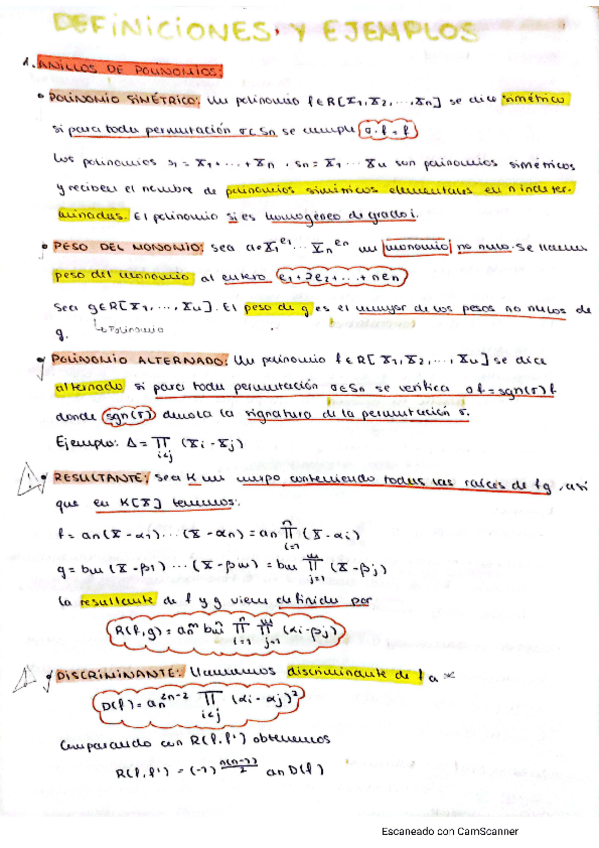 DEFINICIONES Y EJEMPLOS
1. ANILLOS DE POLINOMIOS:
• POLINOMIO SIMÉTRICO: Un polinomio f∈R[X₁,X₂,...,Xn] se dice simétrico
si para toda permutación σ∈Sn se cumple σ·f = f
Los polinomios s₁ = X₁+...+Xn , sn = X₁...Xn son polinomios simétricos
y reciben el nombre de polinomios simétricos elementales en n indeter-
minadas. El polinomio si es homogéneo de grado i.
• PESO DEL MONOMIO: sea a·X₁^e₁...Xn^en un monomio no nulo. Se llama
peso del monomio al entero e₁+2e₂+...+nen
Sea g∈R[X₁,...,Xn]. El peso de g es el mayor de los pesos no nulos de
g. ↳Polinomio
• POLINOMIO ALTERNADO: Un polinomio f∈R[X₁,X₂,...,Xn] se dice
alternado si para toda permutación σ∈Sn se verifica σf = sgn(σ)f
donde sgn(σ) denota la signatura de la permutación σ.
Ejemplo: Δ = ∏ i<j (Xi - Xj)
• RESULTANTE: sea K un cuerpo conteniendo todas las raíces de fg, así
que en K[X] tenemos:
f = an(X-α₁)...(X-αn) = an ∏ i=1 n (X-αi)
g = bm(X-β₁)...(X-βm) = bm ∏ j=1 m (X-βj)
La resultante de f y g viene definida por
R(f,g) = an^m bm^n ∏ i=1 n ∏ j=1 m (αi-βj)
• DISCRIMINANTE: Llamamos discriminante de f a *
D(f) = an^2n-2 ∏ i<j (αi - αj)²
Comparando con R(f,f') obtenemos
R(f,f') = (-1)^n(n-1)/2 an D(f)
Escaneado con CamScanner